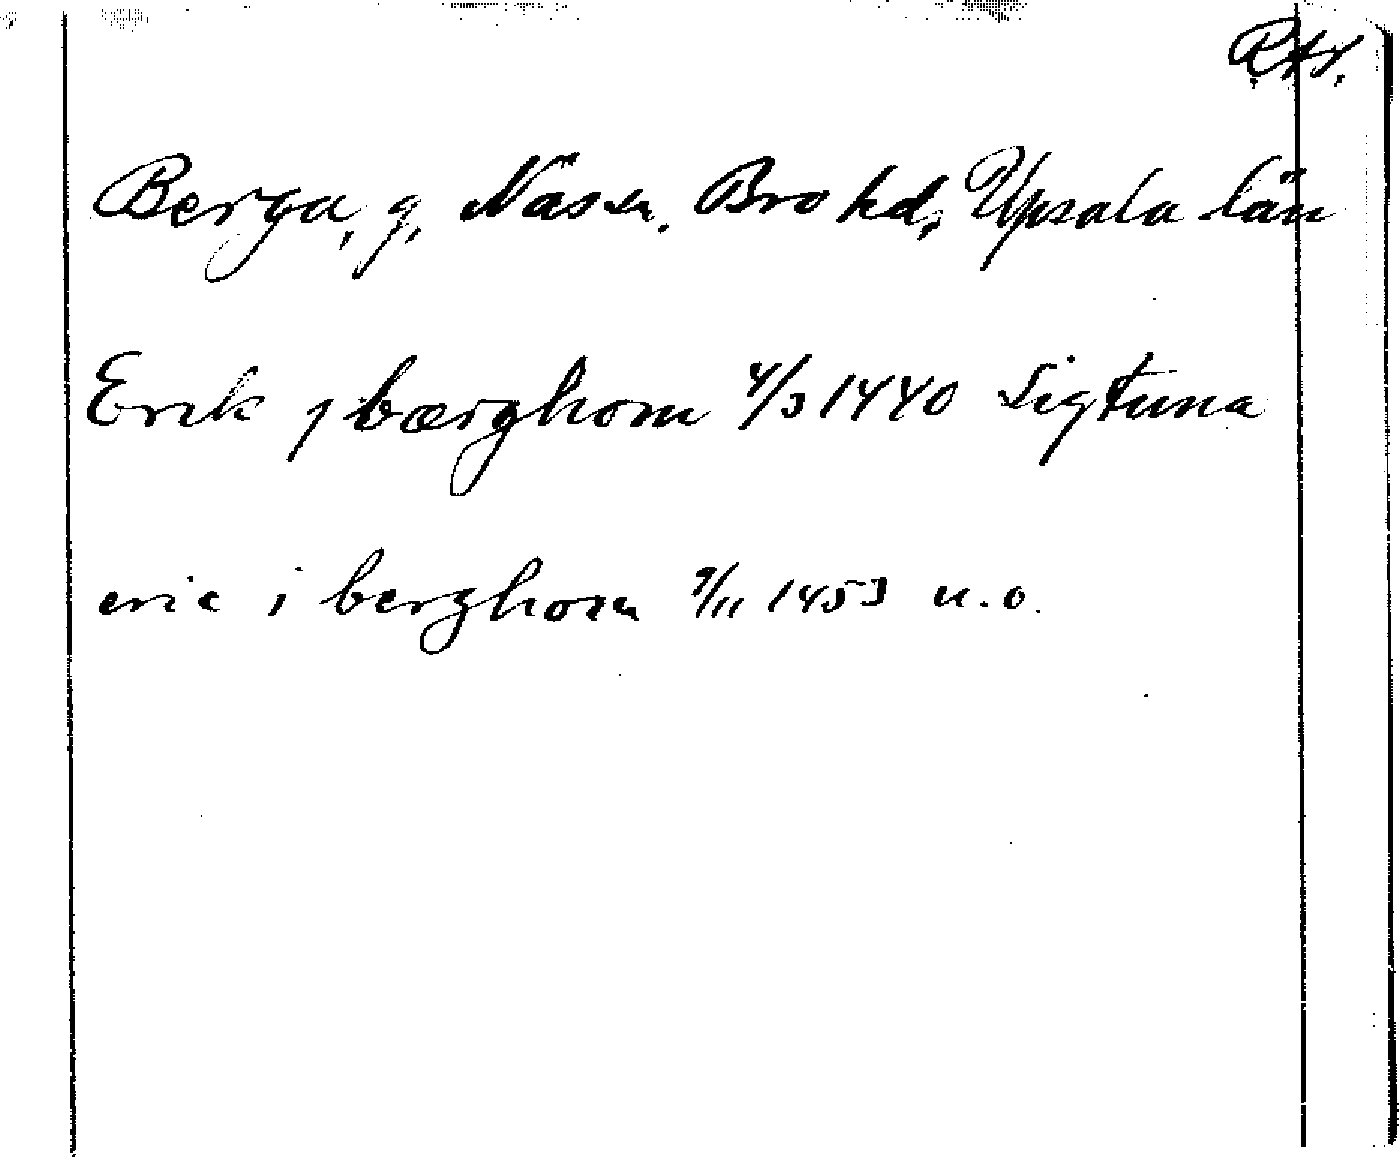 Berga, g, Näs sn. Bro hd, Upsala län
Erik j bærghom 4/3 1440 Sigtuna
eric i berghom 9/11 1453 u.o.